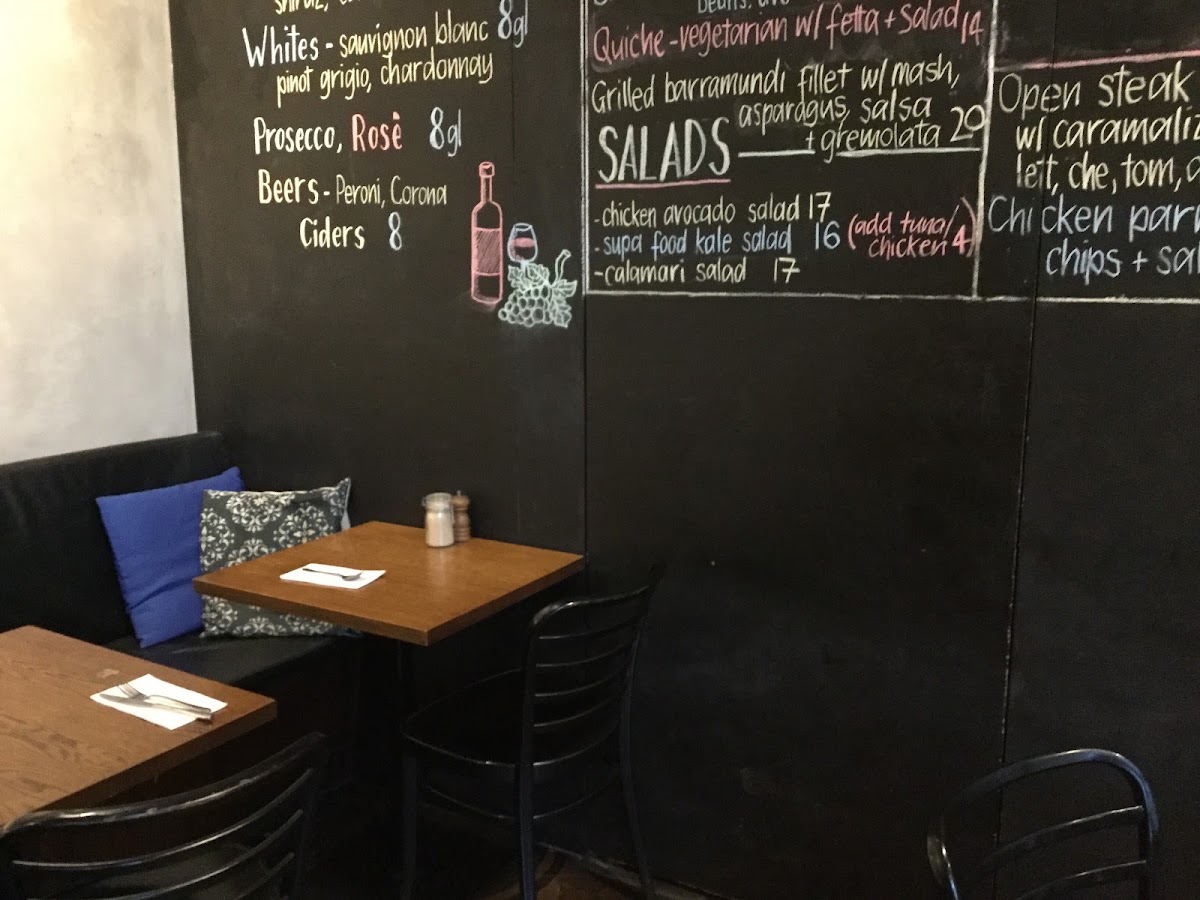 shiraz,
Whites - sauvignon blanc 8gl
pinot grigio, chardonnay
Prosecco, Rosè 8gl
Beers - Peroni, Corona
Ciders 8
beans,
Quiche - vegetarian w/ fetta + salad 14
Grilled barramundi fillet w/ mash,
asparagus, salsa
+ gremolata 20
SALADS
- chicken avocado salad 17
- supa food kale salad 16 (add tuna/
chicken 4)
- calamari salad 17
Open steak
w/ caramaliz
lett, che, tom,
Chicken par
chips + sal